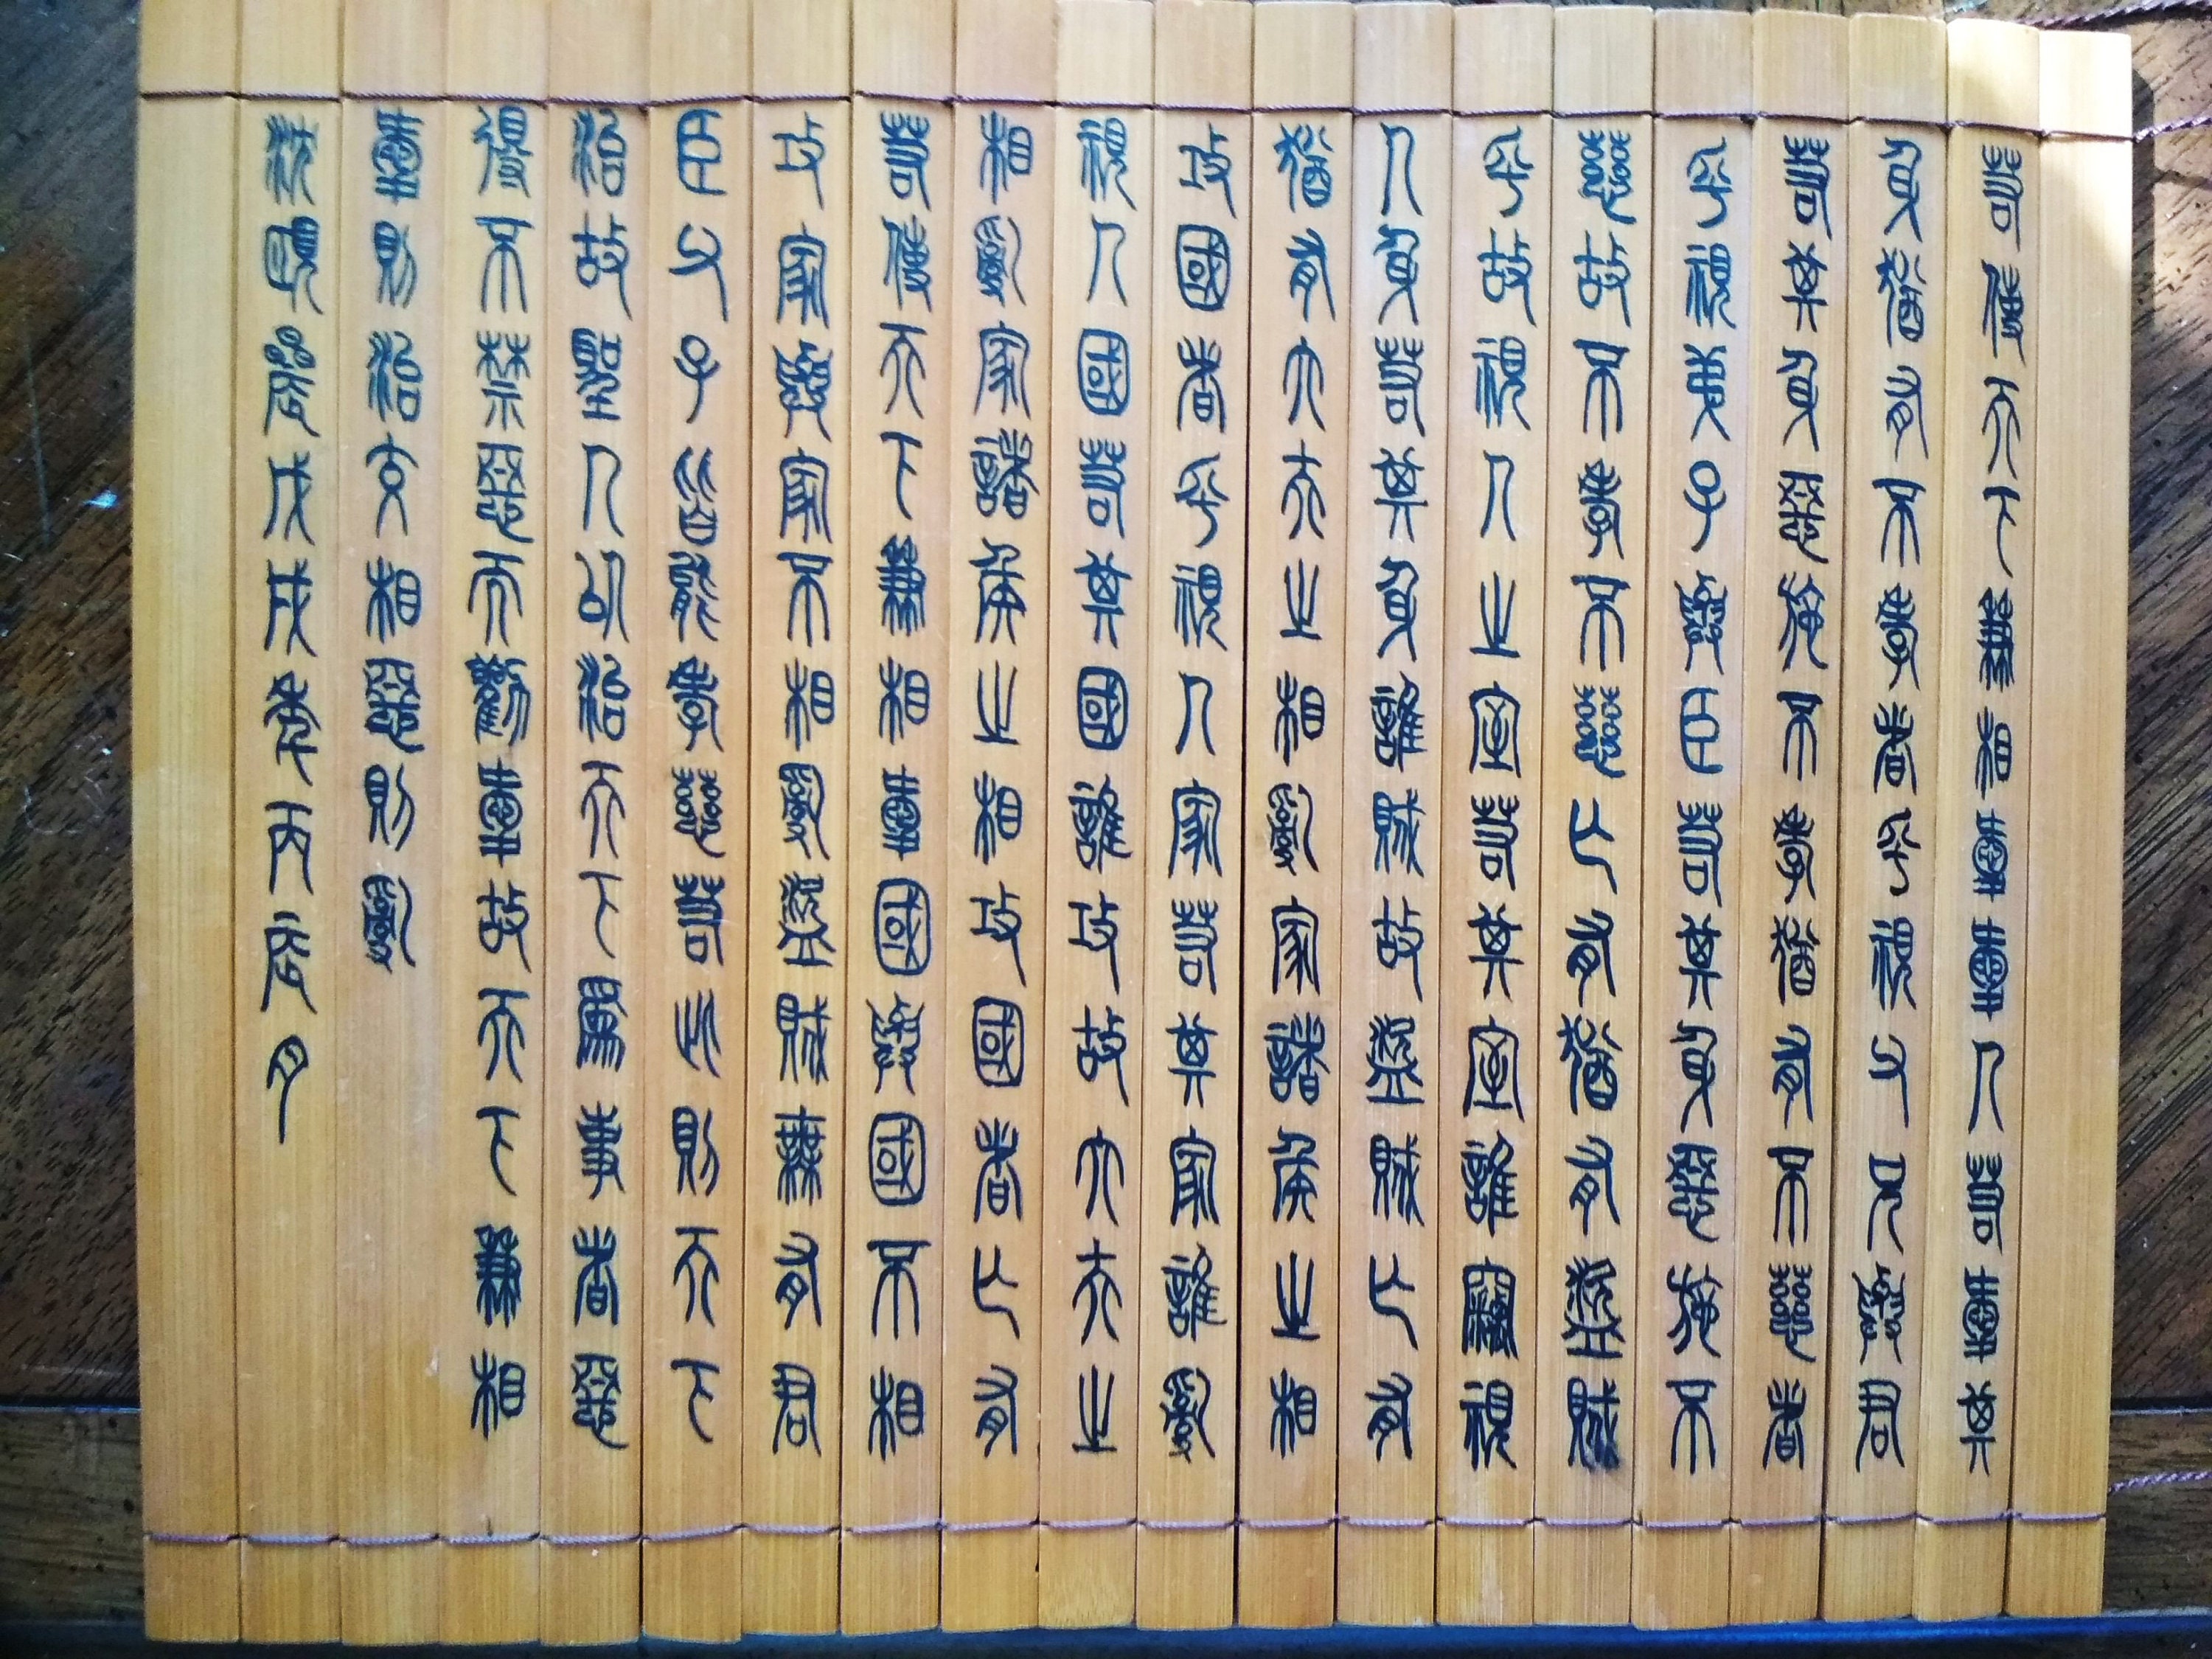 若使天下兼相愛愛人若愛其
身猶有不孝者乎視父兄與君
若其身惡施不孝猶有不慈者
乎視弟子與臣若其身惡施不
慈故不孝不慈亡有猶有盜賊
乎故視人之室若其室誰竊視
人身若其身誰賊故盜賊亡有
猶有大夫之相亂家諸侯之相
攻國者乎視人家若其家誰亂
視人國若其國誰攻故大夫之
相亂家諸侯之相攻國者亡有
若使天下兼相愛國與國不相
攻家與家不相亂盜賊無有君
臣父子皆能孝慈若此則天下
治故聖人以治天下為事者惡
得不禁惡而勸愛故天下兼相
愛則治交相惡則亂
晨戊戌年丙辰月